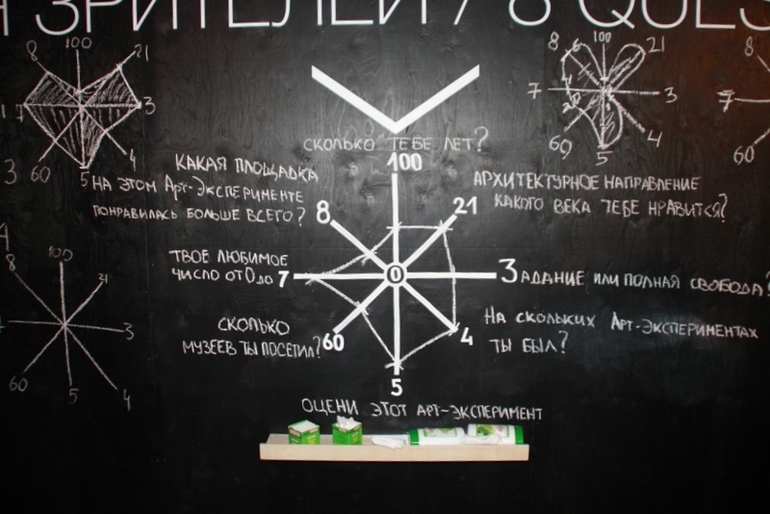 ЗРИТЕЛЕЙ / 8 QUES
8
100
21
7
3
60
5
4
8
100
21
7
3
69
5
4
8
7
60
СКОЛЬКО ТЕБЕ ЛЕТ?
100
КАКАЯ ПЛОЩАДКА
НА ЭТОМ АРТ-ЭКСПЕРИМЕНТЕ
ПОНРАВИЛАСЬ БОЛЬШЕ ВСЕГО?
8
21
АРХИТЕКТУРНОЕ НАПРАВЛЕНИЕ
КАКОГО ВЕКА ТЕБЕ НРАВИТСЯ?
ТВОЕ ЛЮБИМОЕ
ЧИСЛО ОТ 0 ДО 7
0
3АДАНИЕ ИЛИ ПОЛНАЯ СВОБОДА?
СКОЛЬКО
МУЗЕЕВ ТЫ ПОСЕТИЛ? 60
4
НА СКОЛЬКИХ АРТ-ЭКСПЕРИМЕНТАХ
ТЫ БЫЛ?
5
ОЦЕНИ ЭТОТ АРТ-ЭКСПЕРИМЕНТ
8
100
21
3
60
5
4